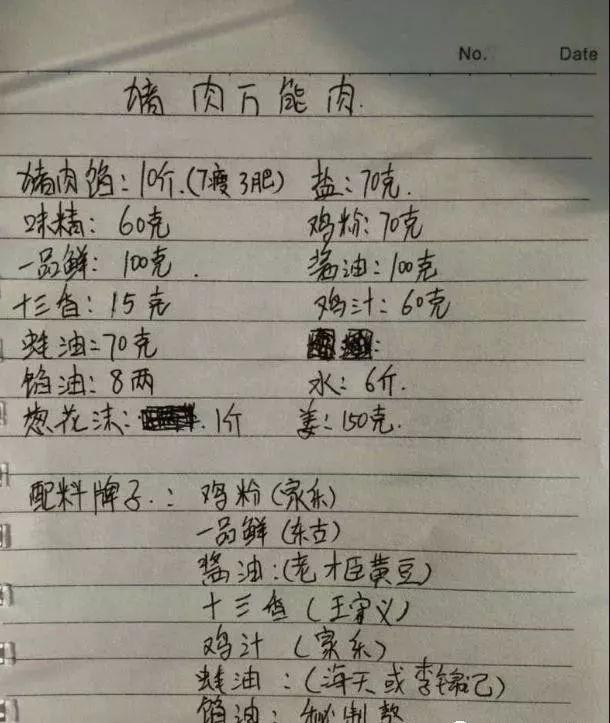 No. Date
猪肉万能肉.
猪肉馅：10斤.(7瘦3肥) 盐：70克.
味精：60克 鸡粉：70克
一品鲜：100克. 酱油：100克
十三香：15克 鸡汁：60克
蚝油：70克
馅油：8两 水：6斤.
葱花沫：1斤 姜：150克.
配料牌子.：鸡粉(家乐)
一品鲜(东古)
酱油:(老才臣黄豆)
十三香(王守义)
鸡汁(家乐)
蚝油：(海天或李锦记)
馅油：秘制